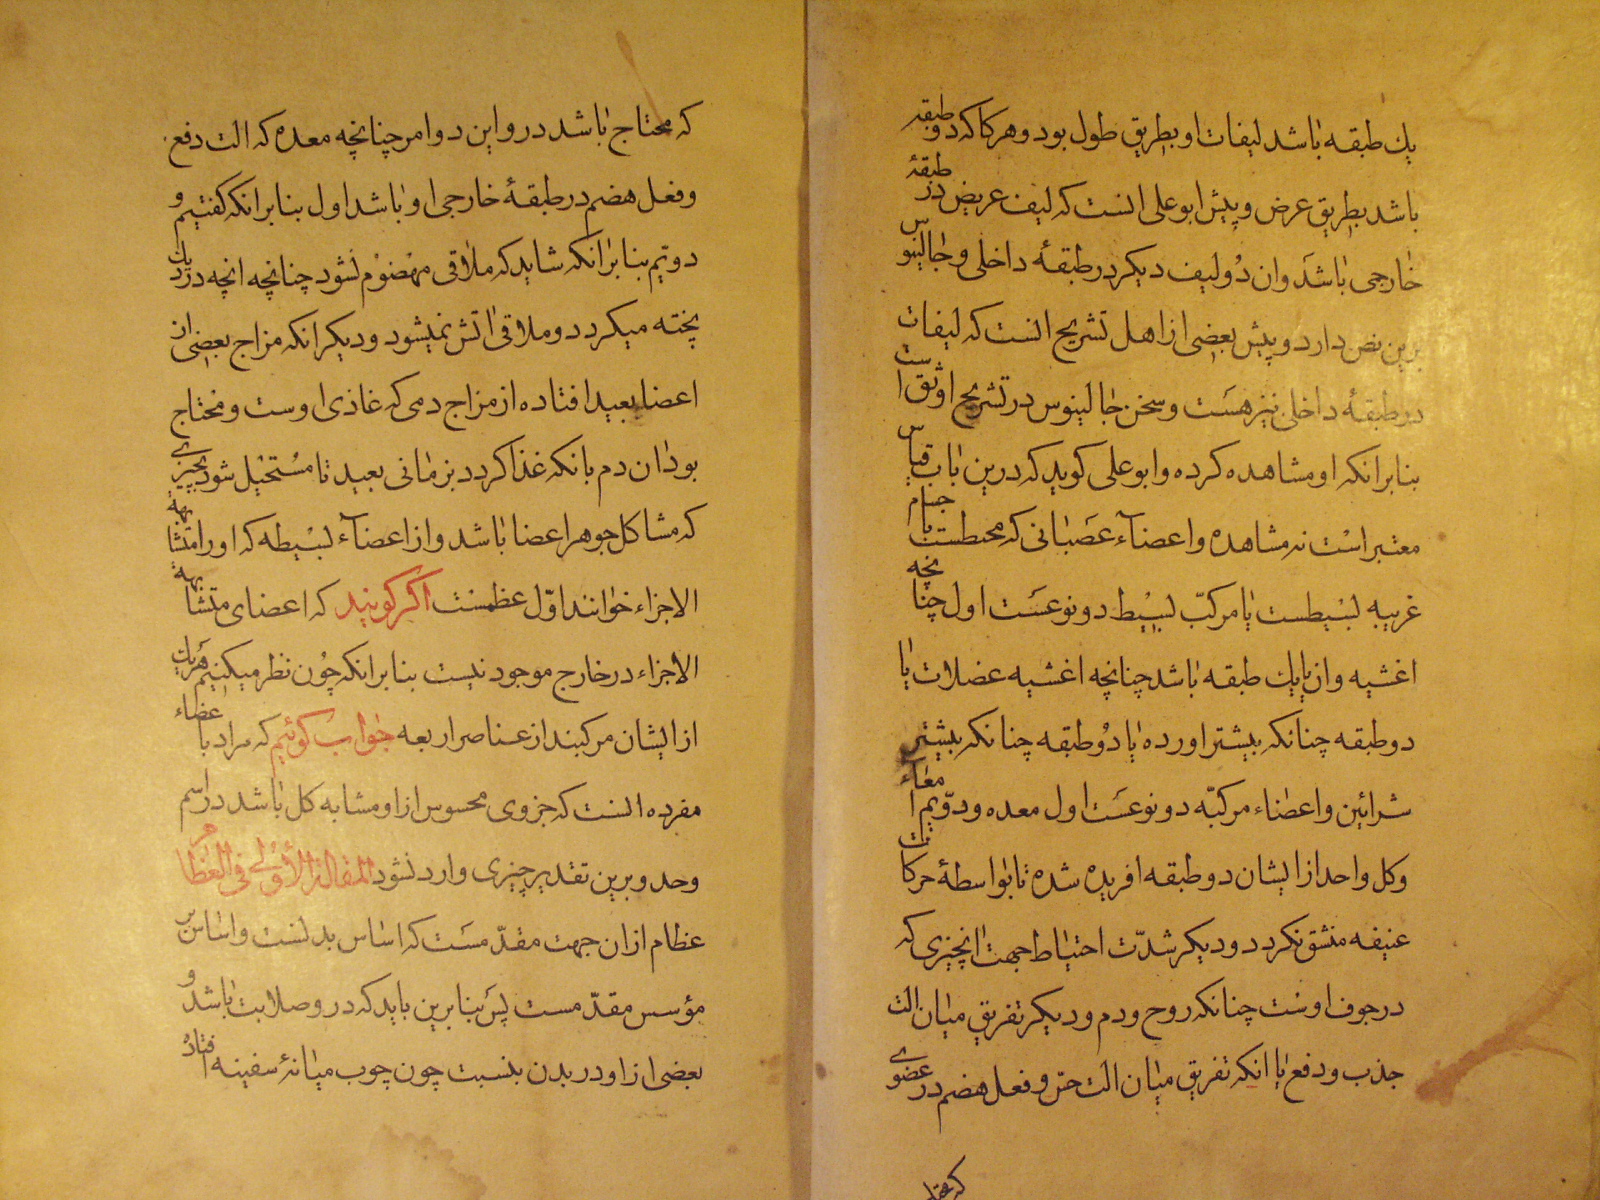 يك طبقه باشد ليفات او بطريق طول بود و هر كاكه دو طبقه
باشد بطريق عرض و پيش ابو على انست كه ليف عريض در طبقۀ
خارجى باشد و ان دو ليف ديكر در طبقۀ داخلى و جالينوس
برين نص دارد و پيش بعضى از اهل تشريح انست كه ليفات
در طبقۀ داخلى نيز هست و سخن جالينوس در تشريح اوثق است
بنابر انكه او مشاهده كرده و ابو على كويد كه درين باب قياس
معتبر است نه مشاهده و اعضاء عصبانى كه محيطست باجسام
غريبه بسيطست يا مركب بسيط دو نوعست اول چنانچه
اغشيه و ان يا يك طبقه باشد چنانچه اغشيه عضلات يا
دو طبقه چنانكه بيشتر اورده يا دو طبقه چنانكه بيشتر
شرائين و اعضاء مركبه دو نوعست اول معده و دويم امعاء
و كل واحد از ايشان دو طبقه افريده شده تا بواسطۀ حركات
عنيفه منشق نكردد و ديكر شدت احتياط جهت انچيزى كه
در جوف اوست چنانكه روح و دم و ديكر تفريق ميان الت
جذب و دفع يا انكه تفريق ميان الت حس و فعل هضم در عضوى
كه محتاج باشد درو اين دو امر چنانچه معده كه الت دفع
و فعل هضم در طبقۀ خارجى او باشد اول بنابر انكه كفتيم و
دويم بنابر انكه شايد كه ملاقى مهضوم نشود چنانچه انچه در ديك
پخته ميكردد و ملاقى اتش نميشود و ديكر انكه مزاج بعضى از
اعضا بعيد افتاده از مزاج دمى كه غاذى اوست و محتاج
بود ان دم بانكه غذا كردد بزمانى بعيد تا مستحيل شود بچيزى
كه مشاكل جوهر اعضا باشد و از اعضاء بسيطه كه او را متشابهة
الاجزاء خوانند اول عظمست اكر كويند كه اعضاى متشابهة
الاجزاء در خارج موجود نيست بنابر انكه چون نظر ميكنيم هريك
از ايشان مركبند از عناصر اربعه جواب كوئيم كه مراد باعضاء
مفرده انست كه جزوى محسوس ازو مشابه كل باشد در اسم
وحد و برين تقدير چيزى وارد نشود المقالة الأولى فى العظام
عظام ازان جهت مقدمست كه اساس بدنست و اساس بر
مؤسس مقدمست پس بنابرين بايد كه درو صلابت باشد و
بعضى ازاو در بدن بنسبت چون چوب ميانۀ سفينه افتاده